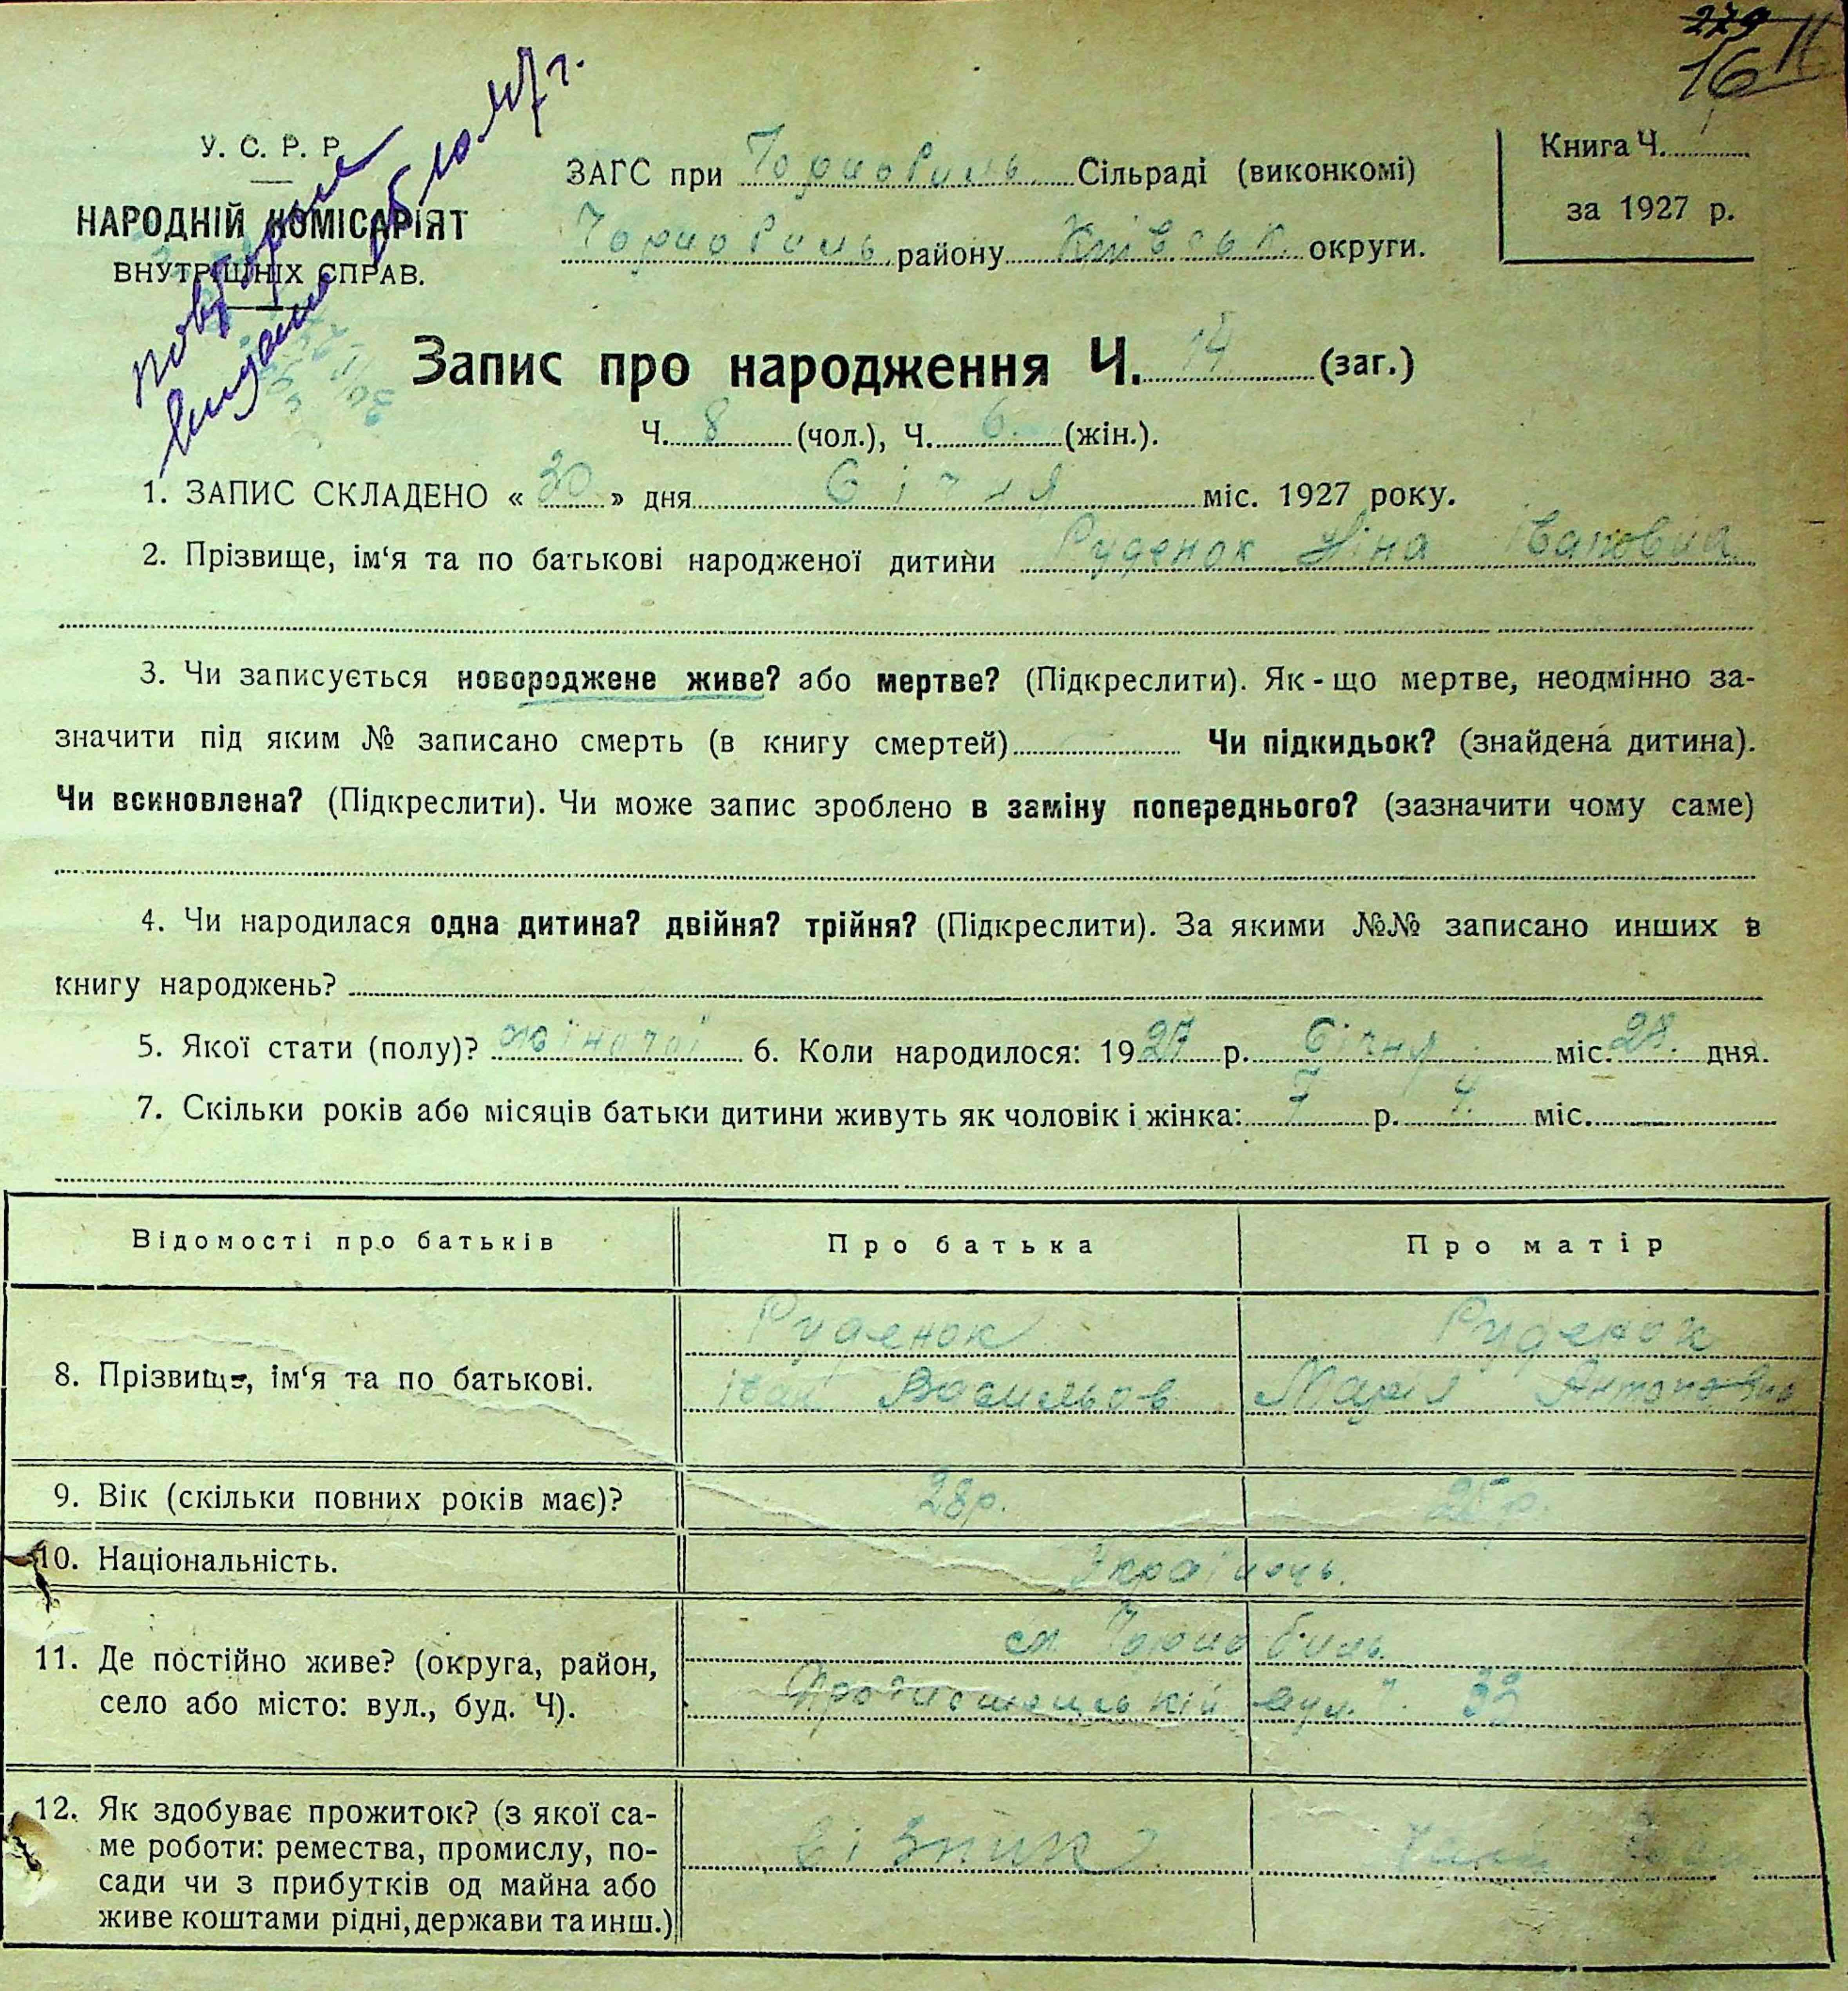 279
16 II
У. С. Р. Р.
НАРОДНІЙ КОМІСАРІЯТ
ВНУТРІШНІХ СПРАВ.
повторне
видано
ЗАГС при Чорнобиль Сільраді (виконкомі)
Чорнобиль району Київськ. округи.
Книга Ч.
за 1927 р.
Запис про народження Ч. 14 (заг.)
Ч. 8 (чол.), Ч. 6. (жін.).
1. ЗАПИС СКЛАДЕНО « 30 » дня Січня міс. 1927 року.
2. Прізвище, ім‘я та по батькові народженої дитини Руденок Ніна Івановна
3. Чи записується новороджене живе? або мертве? (Підкреслити). Як-що мертве, неодмінно за-
значити під яким № записано смерть (в книгу смертей) Чи підкидьок? (знайдена дитина).
Чи всиновлена? (Підкреслити). Чи може запис зроблено в заміну попереднього? (зазначити чому саме)
4. Чи народилася одна дитина? двійня? трійня? (Підкреслити). За якими №№ записано инших в
книгу народжень?
5. Якої стати (полу)? жіночої 6. Коли народилося: 1927 р. Січня міс. дня.
7. Скільки років або місяців батьки дитини живуть як чоловік і жінка: р. 4. міс.
Відомості про батьків Про батька Про матір
8. Прізвище, ім‘я та по батькові.
Руденок Руденок
Іван Васильов Марія Антоновна
9. Вік (скільки повних років має)? 28р. 25 р.
10. Національність. Українець.
11. Де постійно живе? (округа, район,
село або місто: вул., буд. Ч).
см. Чорнобиль.
вул. 33
12. Як здобуває прожиток? (з якої са-
ме роботи: ремества, промислу, по-
сади чи з прибутків од майна або
живе коштами рідні, держави та инш.)
візник